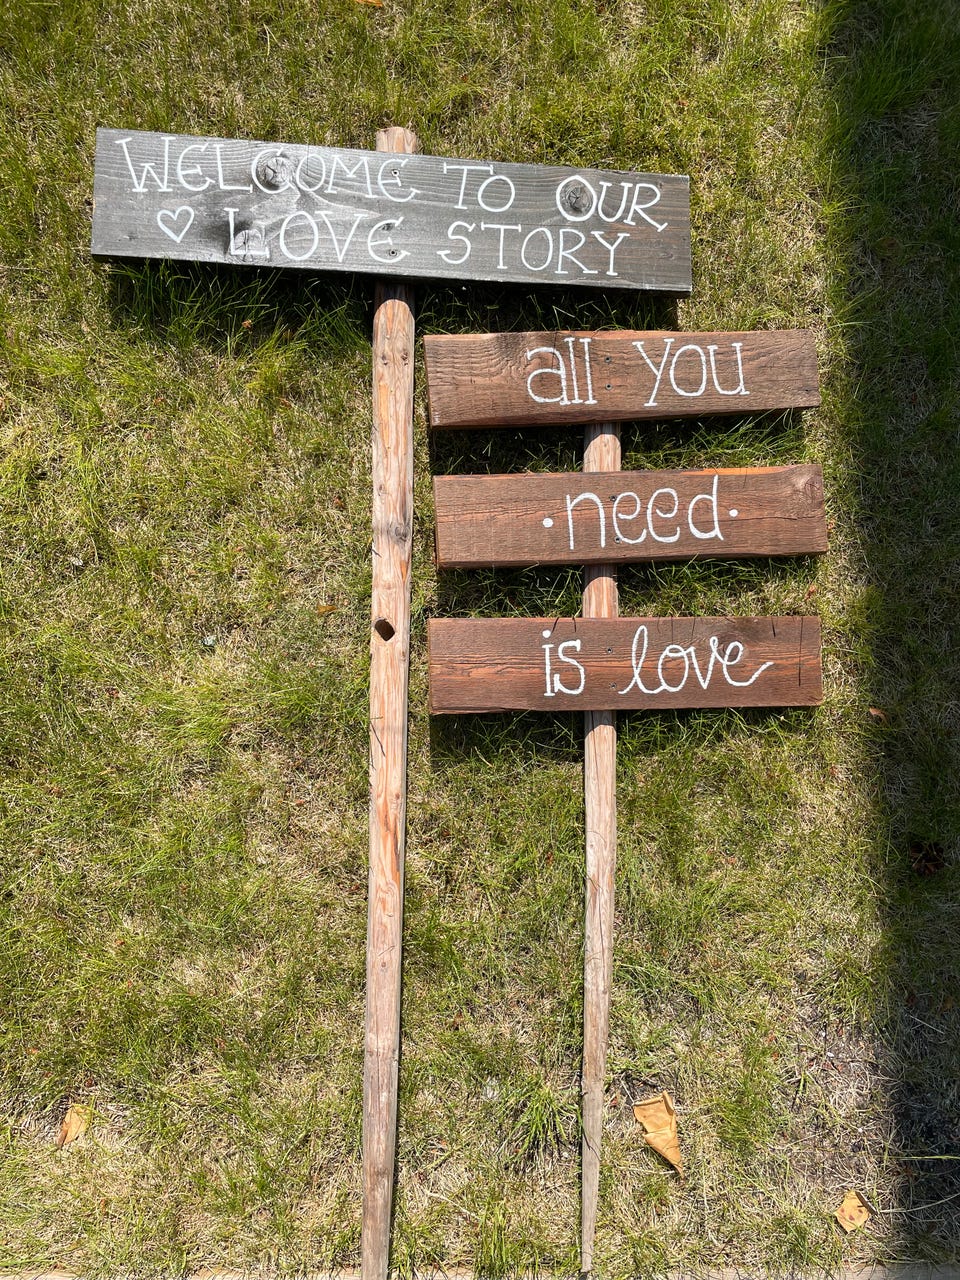 WELCOME TO OUR
♡ LOVE STORY
all you
·need·
is love